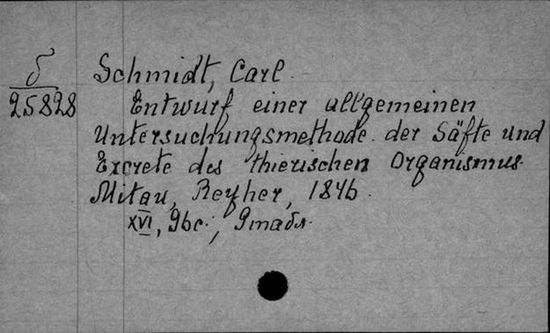 δ
25828
Schmidt, Carl.
Entwurf einer allgemeinen
Untersuchungsmethode der Säfte und
Excrete des thierischen Organismus.
Mitau, Reyher, 1846.
XVI, 96c.; 9табл.